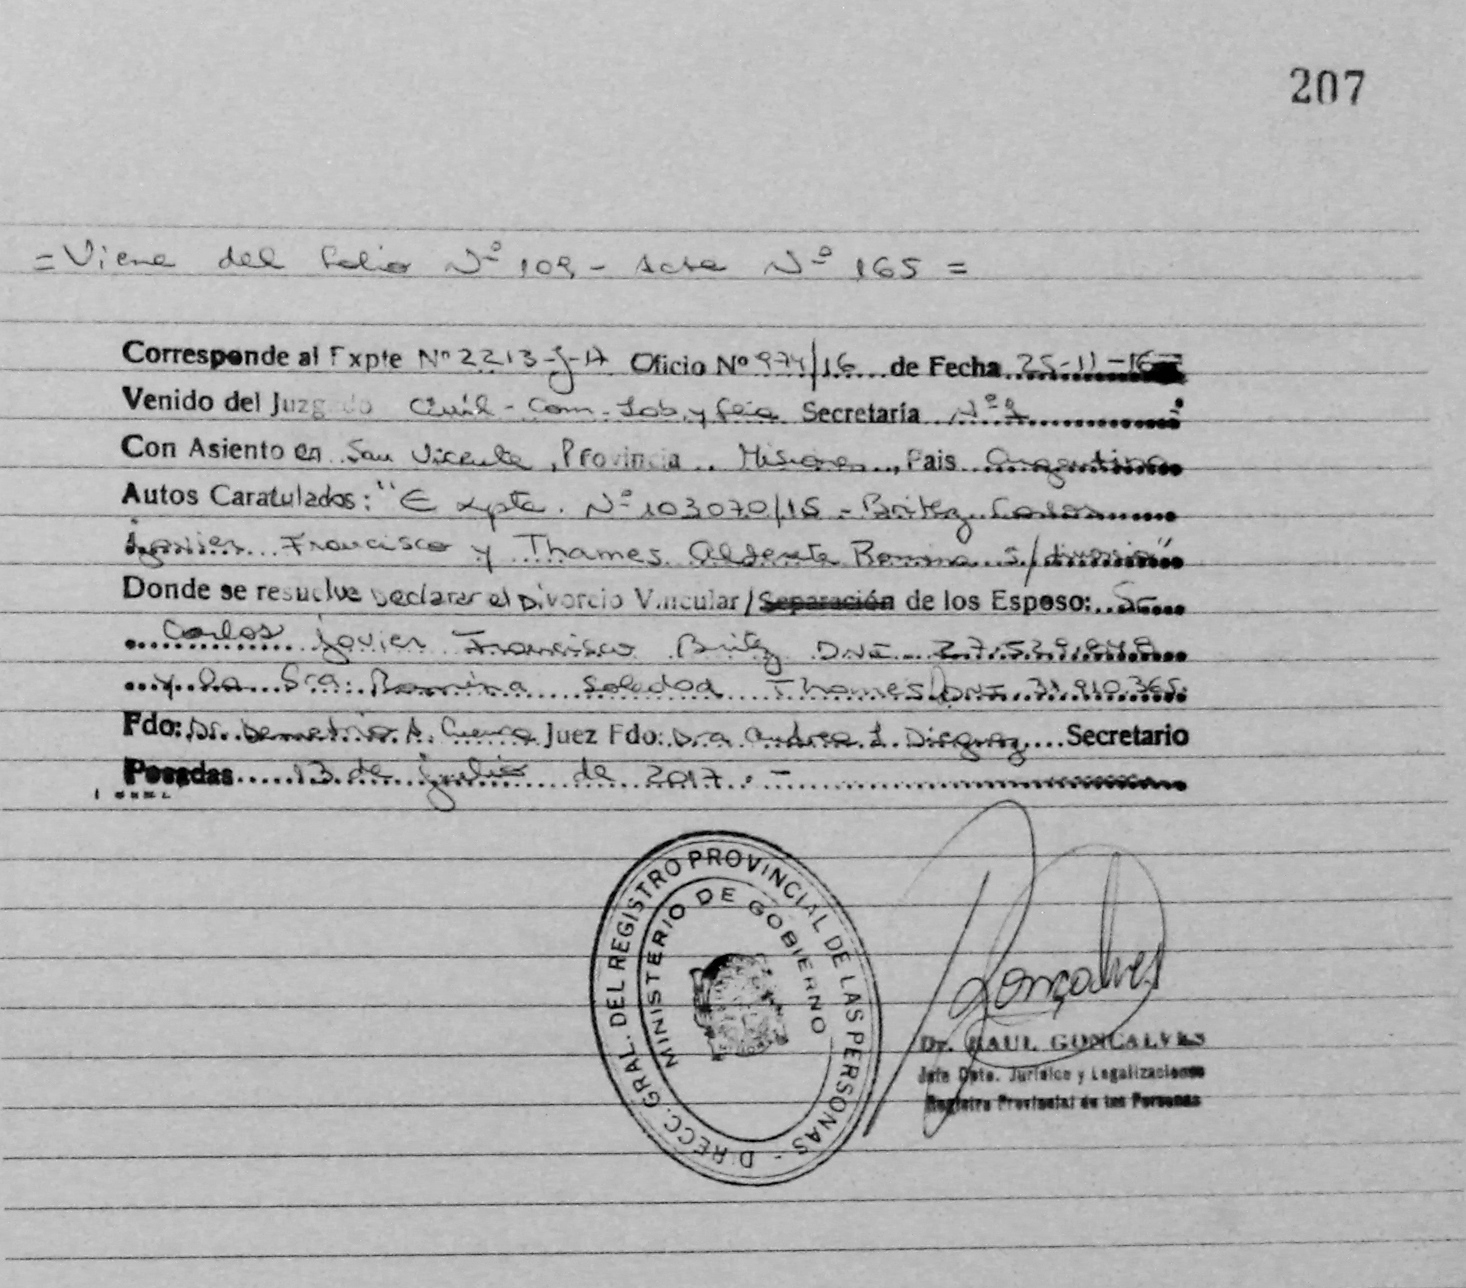 207
= Viene del folio Nº 109 - Acta Nº 165 =
Corresponde al Expte Nº 2213-J-17 Oficio Nº 974/16 de Fecha 25-11-16
Venido del Juzgado Civil - Com. Lab. y Flia Secretaria Nº 1
Con Asiento en San Vicente, Provincia Misiones, Pais Argentina
Autos Caratulados: "Expte. Nº 103070/15 - Britez Carlos
Javier Francisco y Thames Alderete Romina s/divorcio"
Donde se resuelve Declarar el Divorcio Vincular/Separación de los Esposo: Sr.
Carlos Javier Francisco Britez DNI
y la Sra: Romina Soledad Thames DNI 31.910.365.
Fdo: Dr. Demetrio A. Cuenca Juez Fdo: Dra Andrea I. Dieguez Secretario
Posadas 13 de Julio de 2017.-
DIRECC. GRAL. DEL REGISTRO PROVINCIAL DE LAS PERSONAS -
MINISTERIO DE GOBIERNO
Gonçalves
Dr. RAUL GONCALVES
Jefe Dpto. Jurídico y Legalizaciones
Registro Provincial de las Personas